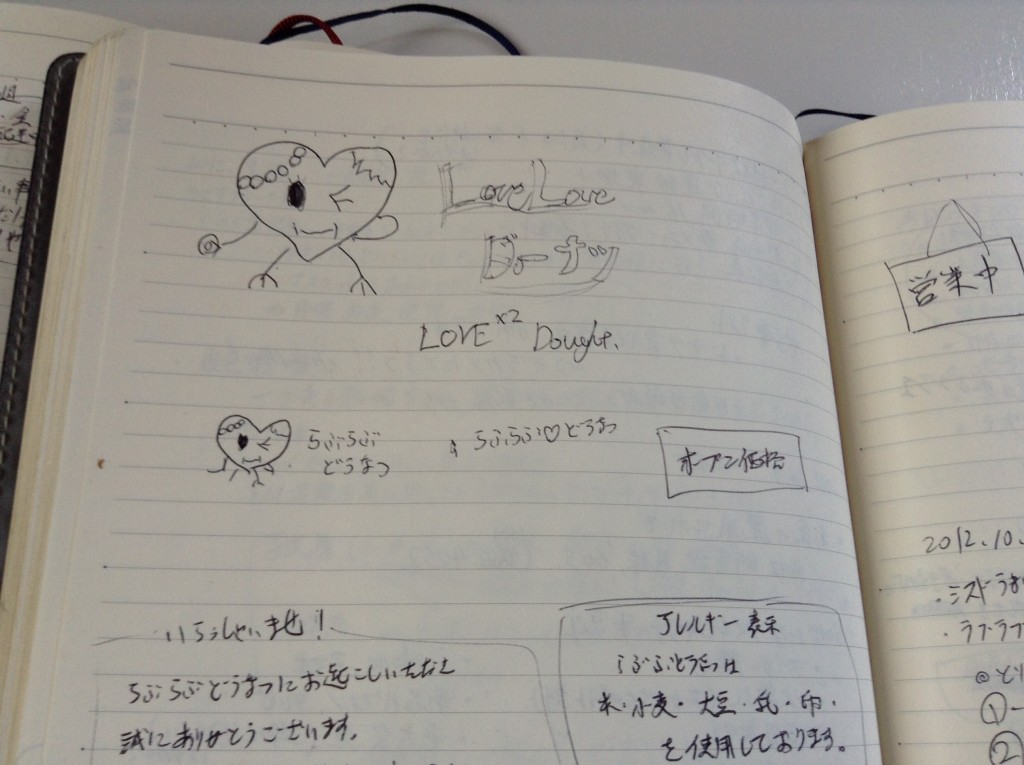 Love Love
ドーナツ
LOVE ×2 Dought.
らぶらぶ
どうなつ
らぶらぶ♡どうなつ
オープン価格
いらっしゃいませ!
らぶらぶどうなつにお越しいただき
誠にありがとうございます。
アレルギー表示
らぶらぶどうなつは
米・小麦・大豆・乳・卵・
を使用しております。
営業中
2012.10.
・ミスド
・ラブラブ
①
②